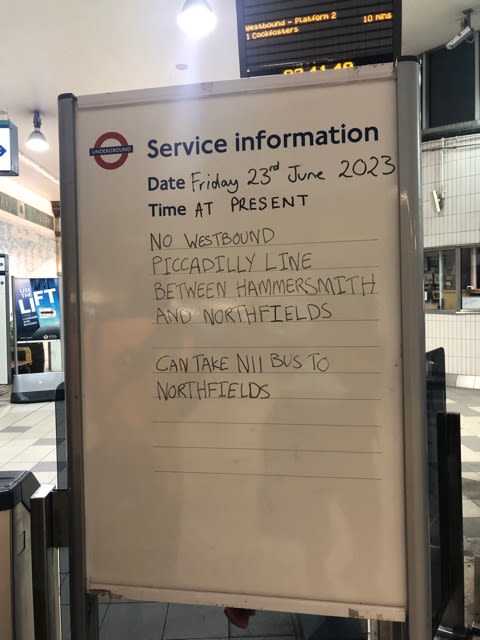 Westbound - Platform 2 10 mins
1 Cockfosters
UNDERGROUND
Service information
Date Friday 23rd June 2023
Time AT PRESENT
NO WESTBOUND
PICCADILLY LINE
BETWEEN HAMMERSMITH
AND NORTHFIELDS
CAN TAKE N11 BUS TO
NORTHFIELDS
USE
THE
LiFT